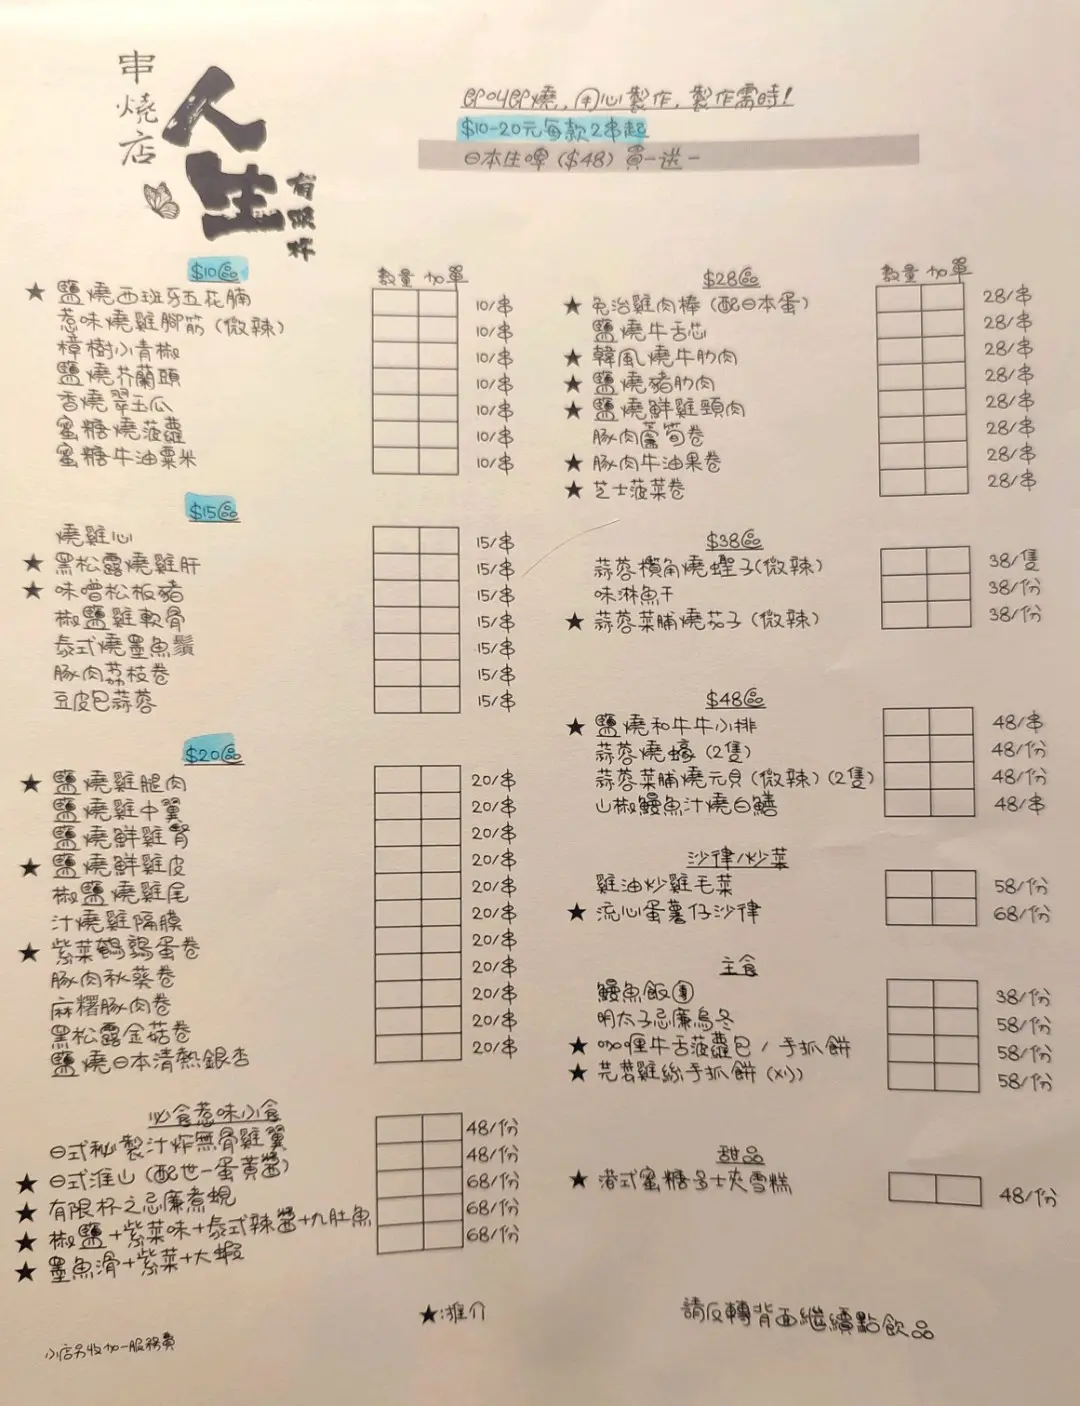 串燒店
人生
有限杯
即叫即燒，用心製作，製作需時！
$10-20元每款2串起
日本生啤（$48）買一送一
$10區
數量 加單
★ 鹽燒西班牙五花腩 10/串
惹味燒雞腳筋（微辣） 10/串
樟樹小青椒 10/串
鹽燒芥蘭頭 10/串
香燒翠玉瓜 10/串
蜜糖燒菠蘿 10/串
蜜糖牛油粟米 10/串
$15區
燒雞心 15/串
★ 黑松露燒雞肝 15/串
★ 味噌松板豬 15/串
椒鹽雞軟骨 15/串
泰式燒墨魚鬚 15/串
豚肉荔枝卷 15/串
豆皮包蒜蓉 15/串
$20區
★ 鹽燒雞腿肉 20/串
鹽燒雞中翼 20/串
鹽燒鮮雞腎 20/串
★ 鹽燒鮮雞皮 20/串
椒鹽燒雞尾 20/串
汁燒雞隔膜 20/串
★ 紫菜鵪鶉蛋卷 20/串
豚肉秋葵卷 20/串
麻糬豚肉卷 20/串
黑松露金菇卷 20/串
鹽燒日本清熱銀杏 20/串
必食惹味小食
日式秘製汁炸無骨雞翼 48/份
★ 日式淮山（配世一蛋黃醬） 48/份
★ 有限杯之忌廉煮蜆 68/份
★ 椒鹽+紫菜味+泰式辣醬+九肚魚 68/份
★ 墨魚滑+紫菜+大蝦 68/份
$28區
數量 加單
★ 免治雞肉棒（配日本蛋） 28/串
鹽燒牛舌芯 28/串
★ 韓風燒牛肋肉 28/串
★ 鹽燒豬肋肉 28/串
★ 鹽燒鮮雞頸肉 28/串
豚肉蘆筍卷 28/串
★ 豚肉牛油果卷 28/串
★ 芝士菠菜卷 28/串
$38區
蒜蓉欖角燒蟶子（微辣） 38/隻
味淋魚干 38/份
★ 蒜蓉菜脯燒茄子（微辣） 38/份
$48區
★ 鹽燒和牛牛小排 48/串
蒜蓉燒蠔（2隻） 48/份
蒜蓉菜脯燒元貝（微辣）（2隻） 48/份
山椒鰻魚汁燒白鱔 48/串
沙律/炒菜
雞油炒雞毛菜 58/份
★ 流心蛋薯仔沙律 68/份
主食
鰻魚飯團 38/份
明太子忌廉烏冬 58/份
★ 咖喱牛舌菠蘿包/手抓餅 58/份
★ 芫荽雞絲手抓餅（凍） 58/份
甜品
★ 港式蜜糖多士夾雪糕 48/份
★:推介
請反轉背面繼續點飲品
小店另收加一服務費